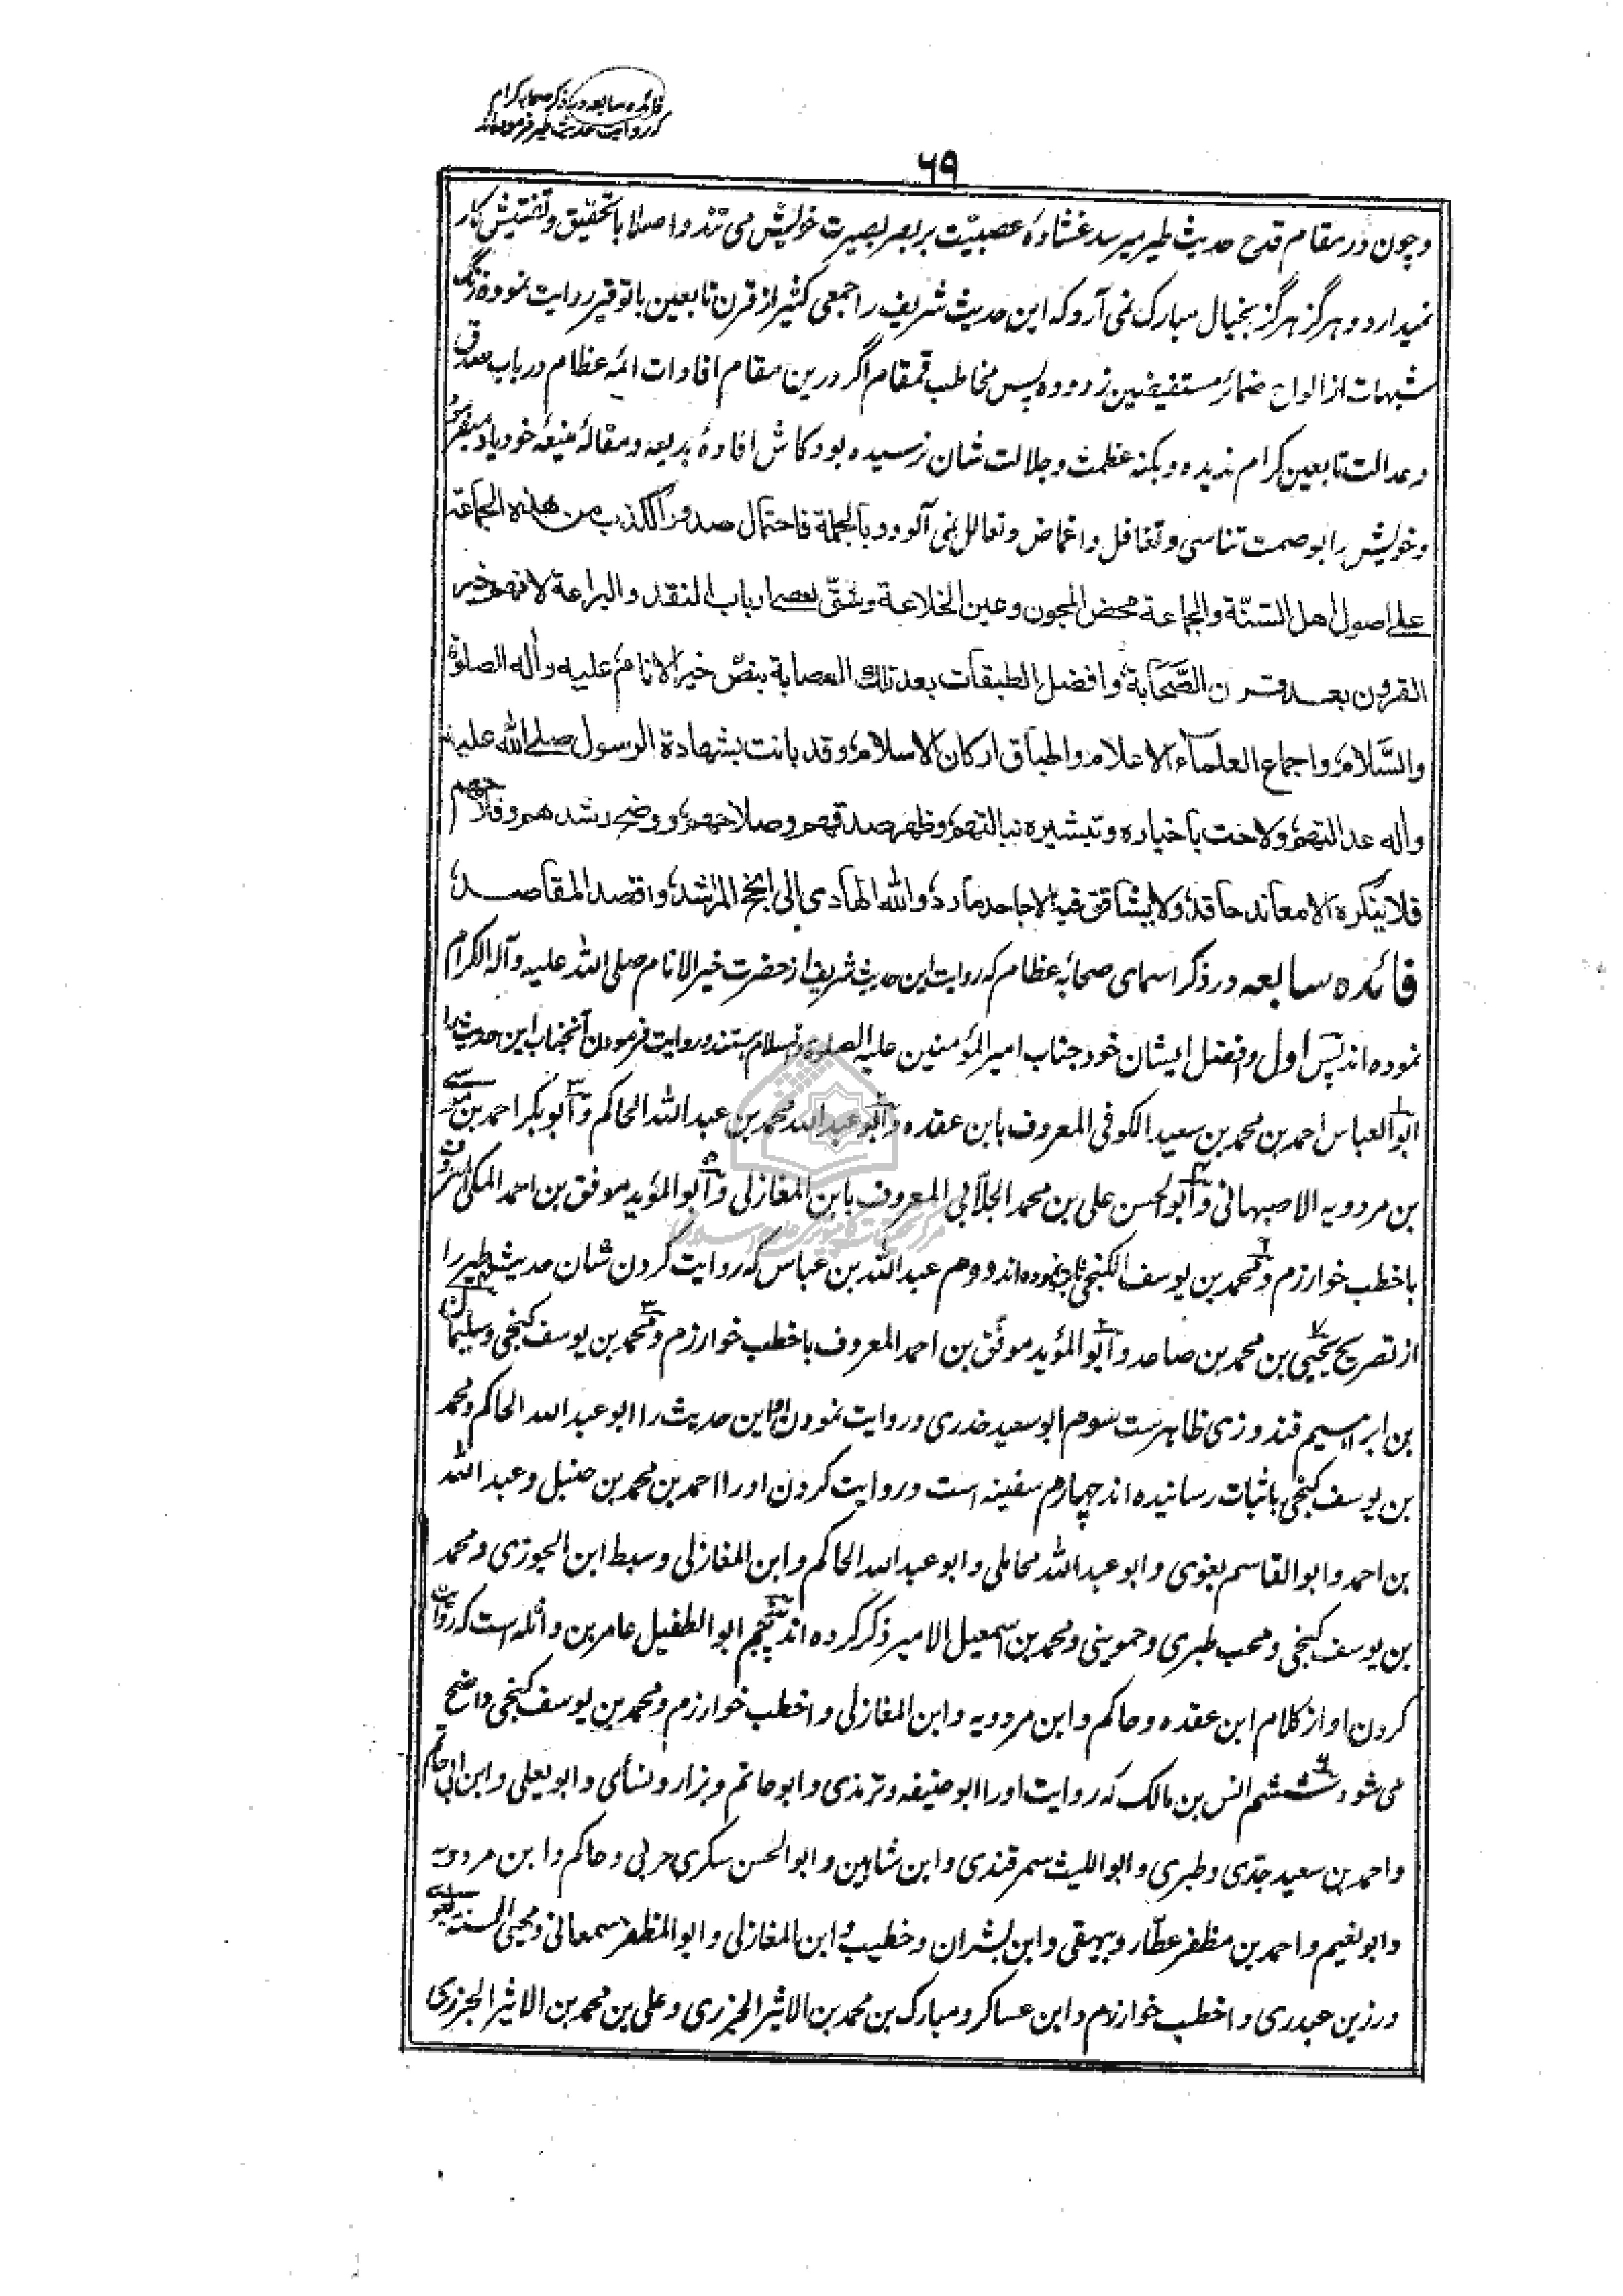 فائده سابعه در ذکر صحابه کرام
که روایت حدیث طیر فرموده‌اند
۶۹
و چون در مقام قدح حدیث طیر میرسد غشاوهٔ عصبیّت بر بصر بصیرت خویش می تند و اصلا با تحقیق و تفتیش کار
نمیدارد و هرگز هرگز بخیال مبارک نمی آرد که این حدیث شریف را جمعی کثیر از قرن تابعین با توقیر روایت نموده زنگ
شبهات از الواح ضمائر مستفیضین زدوده پس مخاطب قمقام اگر درین مقام افادات ائمه عظام در باب صدق
و عدالت تابعین کرام ندیده و بکنه عظمت و جلالت شان نرسیده بود کاش افادهٔ بدیعه و مقالهٔ منیعهٔ خود یاد
و خویش را بوصمت تناسی و تغافل و اغماض و تعالل نمی آلود و بالجملة فاحتمال صدور الکذب من هذه الجماعة
علی اصول اهل السنّة والجماعة محض المجون وعین الخلاعة وشقّ لعصا ارباب النقد والبراعة لانهم خیر
القرون بعد قرن الصّحابة وافضل الطبقات بعد تلك العصابة بنصّ خیر الانام علیه وآله الصلوة
والسّلام واجماع العلماء الاعلام واطباق ارکان الاسلام وقد بانت بشهادة الرسول صلی الله علیه
وآله عدالتهم ولاحت باخباره وتبشیره نبالتهم وظهر صدقهم وصلاحهم ووضح رشدهم وفلاحهم
فلا ینکره الا معاند حاقد ولا یشاقق فیه الا جاحد مارد والله الهادی الی انجح المراشد واقصد المقاصد
فائده سابعه در ذکر اسمای صحابه عظام که روایت این حدیث شریف از حضرت خیر الانام صلی الله علیه وآله الکرام
نموده اند پس اول و افضل ایشان خود جناب امیر المؤمنین علیه الصلوة والسلام هستند و روایت فرمودن آنجناب این حدیث را
ابو العباس احمد بن محمد بن سعید الکوفی المعروف بابن عقده و ابو عبد الله محمد بن عبد الله الحاکم و ابو بکر احمد بن موسی
بن مردویه الاصبهانی و ابو الحسن علی بن محمد الجلّابی المعروف بابن المغازلی و ابو المؤید موفق بن احمد المکی المعروف
باخطب خوارزم و محمد بن یوسف الکنجی ثابت نموده اند دوم عبد الله بن عباس که روایت کردن شان حدیث طیر را
از تصریح یحیی بن محمد بن صاعد و ابو المؤید موفق بن احمد المعروف باخطب خوارزم و محمد بن یوسف کنجی و سلیمان
بن ابراهیم قندوزی ظاهرست سوم ابو سعید خدری و روایت نمودن او این حدیث را ابو عبد الله الحاکم و محمد
بن یوسف کنجی باثبات رسانیده اند چهارم سفینه است و روایت کردن او را احمد بن محمد بن حنبل و عبد الله
بن احمد و ابو القاسم بغوی و ابو عبد الله محاملی و ابو عبد الله الحاکم و ابن المغازلی و سبط ابن الجوزی و محمد
بن یوسف کنجی و محب طبری و حموینی و محمد بن اسمعیل الامیر ذکر کرده اند پنجم ابو الطفیل عامر بن واثله است که روایت
کردن او از کلام ابن عقده و حاکم و ابن مردویه و ابن المغازلی و اخطب خوارزم و محمد بن یوسف کنجی واضح
می شود ششم انس بن مالک که روایت او را ابو حنیفه و ترمذی و ابو حاتم و بزار و نسائی و ابو یعلی و ابن ابی حاتم
و احمد بن سعید جدّی و طبری و ابو اللیث سمرقندی و ابن شاهین و ابو الحسن سکری حربی و حاکم و ابن مردویه
و ابو نعیم و احمد بن مظفر عطّار و بیهقی و ابن بشران و خطیب و ابن المغازلی و ابو المظفر سمعانی و محیی السنه بغوی
و رزین عبدری و اخطب خوارزم و ابن عساکر و مبارک بن محمد بن الاثیر الجزری و علی بن محمد بن الاثیر الجزری